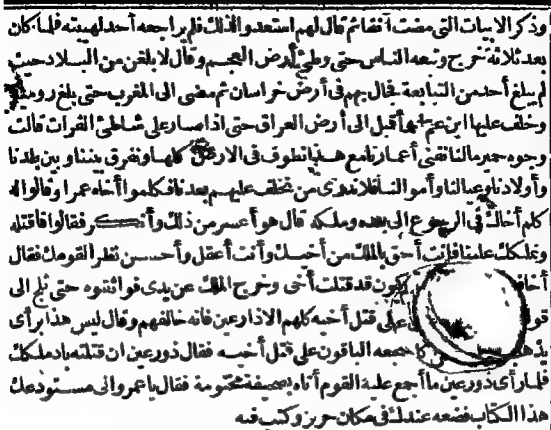 وذكر الابيات التي مضت آنفا ثم قال لهم استعدوا لذلك فلم يراجعه أحد لهيبته فلما كان
بعد ثلاثة خرج وتبعه الناس حتى وطئ أرض العجم وقال لا بلغن من البلاد حيث
لم يبلغ أحد من التبابعة فجال بهم في أرض خراسان ثم مضى الى المغرب حتى بلغ رومية
وخلف عليها ابن عم أقبل الى أرض العراق حتى اذا صار على شاطئ الفرات قالت
وجوه حمير مالنا نفني أعمارنا مع هذا نطوف في الارض كلها ونفرق بيننا وبين بلدنا
وأولادنا وعيالنا وأموالنا فلا ندري من نخلف عليهم بعدنا فكلموا أخاه عمرا وقالوا له
كلم أخاك في الرجوع الى بلده وملكه قال هو أعسر من ذلك وأنكر فقالوا فاقتله
ونملكك علينا فانت أحق بالملك من أخيك وأنت أعقل وأحسن نظرا لقومك فقال
أخاف يكون قد قتلت أخي وخرج الملك عن يدي فواثقوه حتى ثلج الى
قو على قتل أخيه كلهم الا ذا رعين فانه خالفهم وقال ليس هذا برأى
يذهب جمعه الباقون على قتل أخيه فقال ذو رعين ان قتلته باد ملكك
فلما رأى ذو رعين ما أجمع عليه القوم أتاه بصحيفة مختومة فقال يا عمرو اني مستودعك
هذا الكتاب فضعه عندك في مكان حريز وكتب فيه